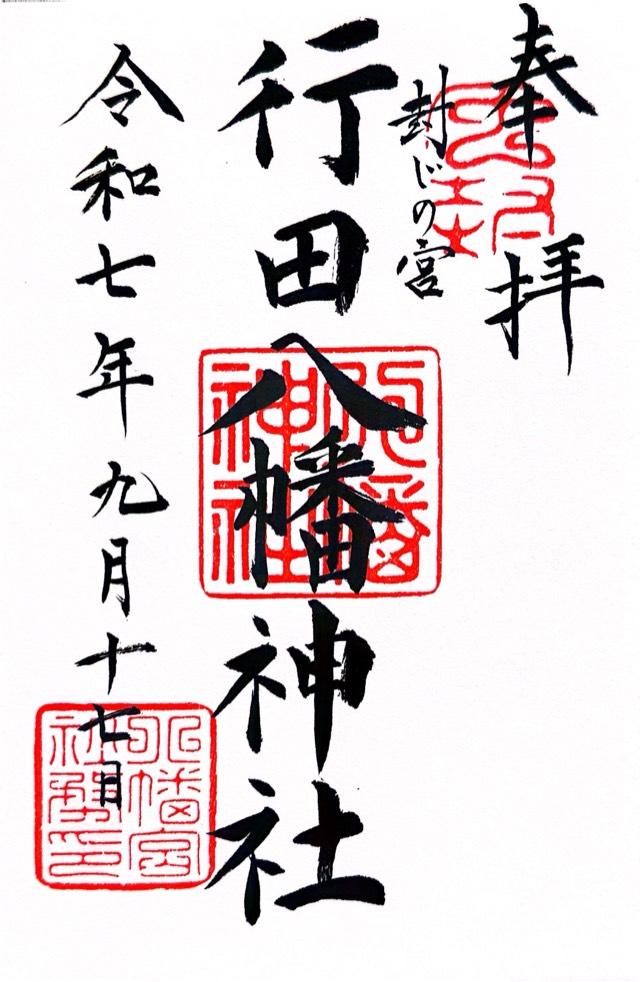 奉拝
封じの宮
行田八幡神社
令和七年九月十七日
八幡神社